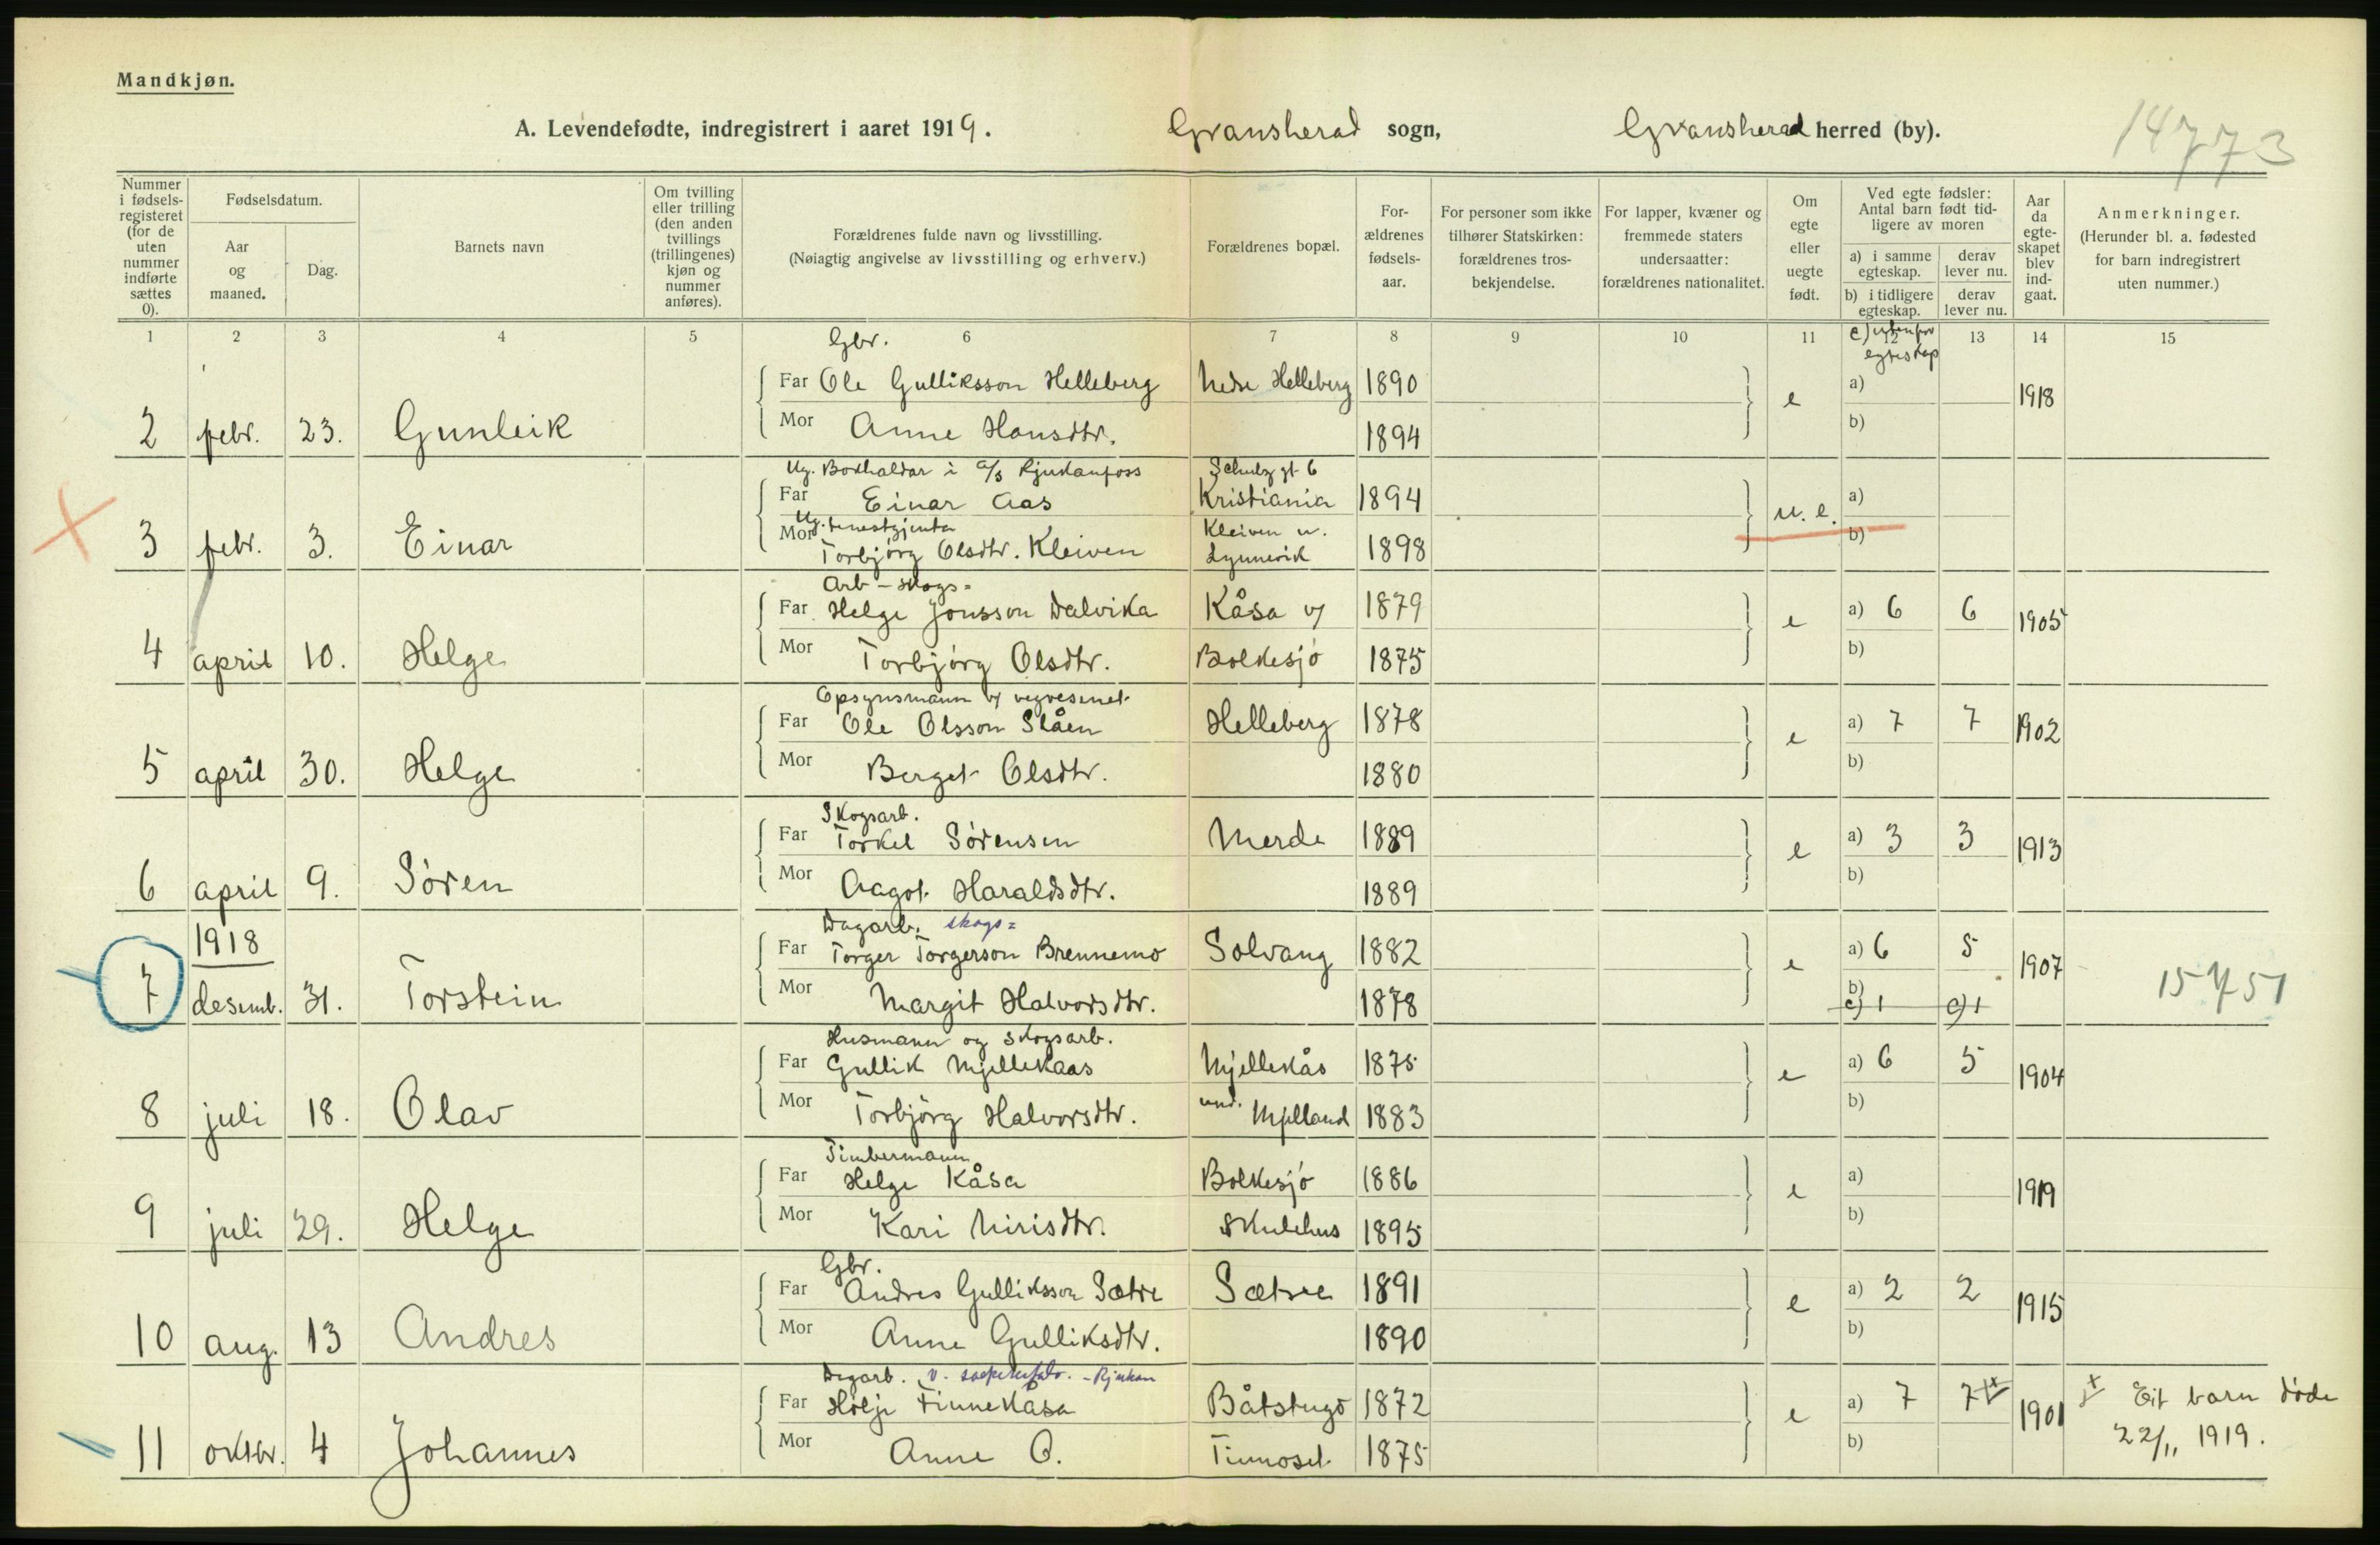 Mandkjøn.
A. Levendefødte, indregistrert i aaret 1919. Gransherad sogn, Gransherad herred (by).
14773
Nummer i fødsels-registeret (for de uten nummer indførte sættes 0).
Fødselsdatum.
Aar og maaned.
Dag.
Barnets navn
Om tvilling eller trilling (den anden tvillings (trillingenes) kjøn og nummer anføres).
Forældrenes fulde navn og livsstilling.
(Nøiagtig angivelse av livsstilling og erhverv.)
Forældrenes bopæl.
For-ældrenes fødsels-aar.
For personer som ikke tilhører Statskirken: forældrenes tros-bekjendelse.
For lapper, kvæner og fremmede staters undersaatter: forældrenes nationalitet.
Om egte eller uegte født.
Ved egte fødsler: Antal barn født tid-ligere av moren
a) i samme egteskap.
derav lever nu.
b) i tidligere egteskap.
derav lever nu.
Aar da egte-skapet blev ind-gaat.
Anmerkninger.
(Herunder bl. a. fødested for barn indregistrert uten nummer.)
1 2 3 4 5 6 7 8 9 10 11 12 13 14 15
c) utenfor egteskap
Gbr.
Far Ole Gulliksson Helleberg Nedre Helleberg 1890 e a) 1918
2 febr. 23. Gunleik Mor Anne Hansdtr. 1894 b)
Ug. Bokhaldar i A/S Rjukanfoss Schulz gt 6
Far Einar Aas Kristiania 1894 u. e. a)
Ug. tenestgjenta Kleiven u.
3 febr. 3. Einar Mor Torbjörg Olsdtr. Kleiven Lynnevik 1898 b)
Arb - skogs-
Far Helge Jonsson Dalvika Kåsa v/ 1879 e a) 6 6 1905
4 april 10. Helge Mor Torbjörg Olsdtr. Bolkesjö 1875 b)
Opsynsmann v/ vegvesenet
Far Ole Olsson Slåen Helleberg 1878 e a) 7 7 1902
5 april 30. Helge Mor Berget Olsdtr. 1880 b)
Skogsarb.
Far Torkel Sörensen Merde 1889 e a) 3 3 1913
6 april 9. Sören Mor Aagot Haraldsdtr. 1889 b)
1918 Dagarb. skogs=
Far Torger Torgerson Brennemo Solvang 1882 e a) 6 5 1907
7 desemb. 31. Torstein Mor Margit Halvorsdtr. 1878 b) c) 1 c) 1 15751
Husmann og skogsarb.
Far Gullik Mjellekaas Mjellekås 1875 e a) 6 5 1904
8 juli 18. Olav Mor Torbjörg Halvorsdtr. und. Mjelland 1883 b)
Timbermann
Far Helge Kåsa Bolkesjö 1886 e a) 1919
9 juli 29. Helge Mor Kari Nirisdtr. Skulehus 1895 b)
Gbr.
Far Andres Gulliksson Sætre Sætre 1891 e a) 2 2 1915
10 aug. 13 Andres Mor Anne Gulliksdtr. 1890 b)
Dagarb. v. - Rjukan
Far Hölje Finnekåsa Båtstugo 1872 e a) 7 7 x 1901 x Eit barn döde
11 oktbr. 4 Johannes Mor Anne O. Tinnoset 1875 b) 22/11 1919.